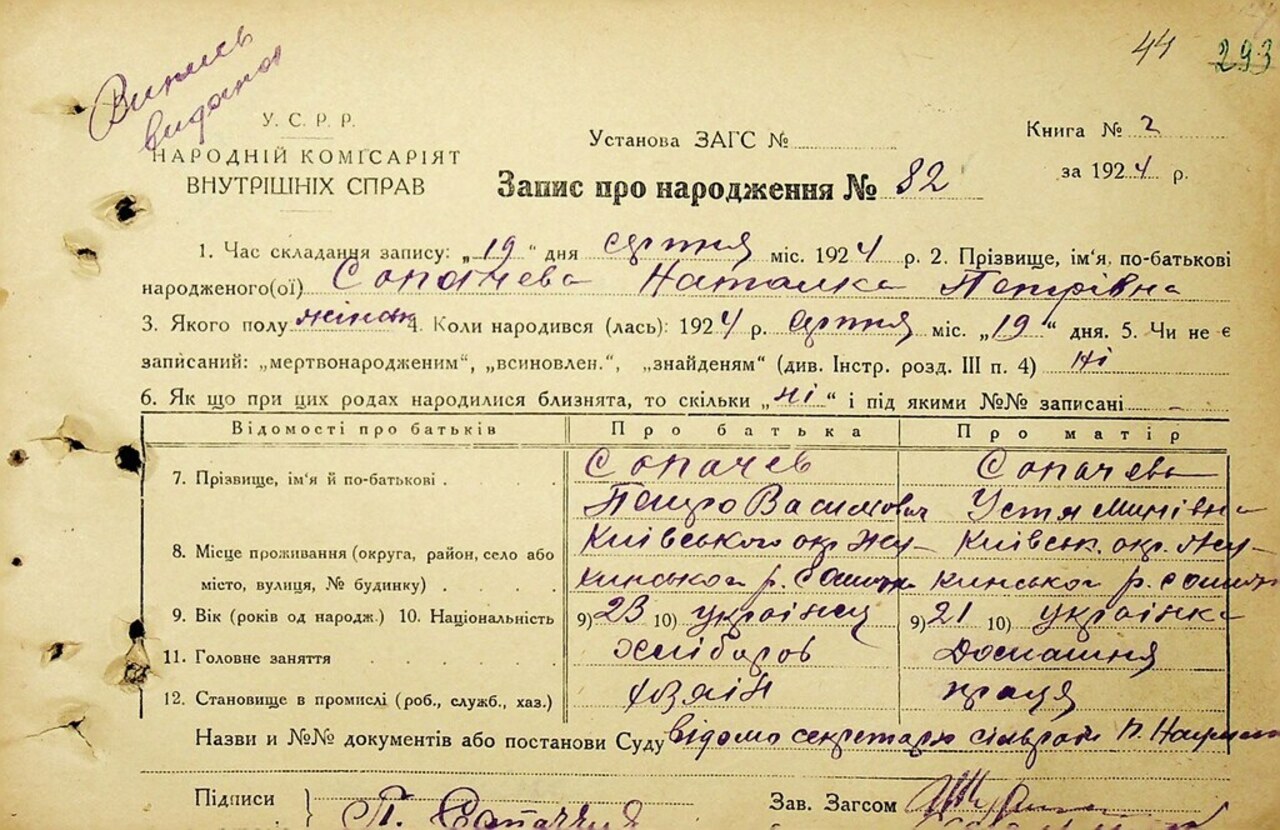 44 293
Випись
видано
У. С. Р. Р.
НАРОДНІЙ КОМІСАРІЯТ
ВНУТРІШНІХ СПРАВ
Установа ЗАГС №
Книга № 2
за 1924 р.
Запис про народження № 82
1. Час складання запису: „19“ дня серпня міс. 1924 р. 2. Прізвище, ім'я, по-батькові
народженого(ої) Сопачева Наталка Петрівна
3. Якого полу жіноч. 4. Коли народився (лась): 1924 р. серпня міс. „19“ дня. 5. Чи не є
записаний: „мертвонародженим“, „всиновлен.“, „знайденям“ (див. Інстр. розд. III п. 4) ні
6. Як що при цих родах народилися близнята, то скільки „ні“ і під якими №№ записані -
Відомості про батьків Про батька Про матір
7. Прізвище, ім'я й по-батькові . Сопачев Сопачева
Петро Васильович Устя Минівна
8. Місце проживання (округа, район, село або Київського окр. Київськ. окр.
місто, вулиця, № будинку) . р. р.
9. Вік (років од народж.) 10. Національність 9) 23 10) українец 9) 21 10) українка
11. Головне заняття . . . . . Хлібороб Домашня
12. Становище в промислі (роб., служб., хаз.) хазяін праця
Назви и №№ документів або постанови Суду відомо секретарю сільради П.
Підписи } П. Зав. Загсом